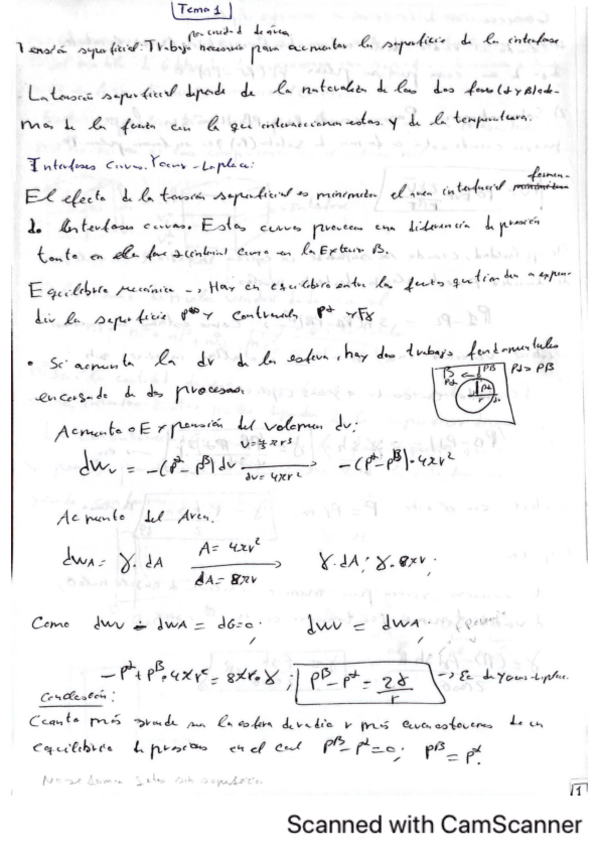 Tema 1
por unidad de área
Tensión superficial: Trabajo necesario para aumentar la superficie de la interfase
La tensión superficial depende de la naturaleza de las dos fases (α y β) ade-
más de la fuerza con la que interaccionan estas y de la temperatura.
Interfases Curvas. Young-Laplace:
El efecto de la tensión superficial es minimizar el area interfacial forman-
do interfases curvas. Estas curvas provocan una diferencia de presión
tanto en la fase α interior como en la Exterior β.
Equilibrio mecánico -> Hay un equilibrio entre las fuerzas que tienden a expan-
dir la superficie y contraerla Pα y Fγ
• Si aumenta la dr de la esfera, hay dos trabajos fundamentales
encargado de dos procesos.
β Pβ Pα > Pβ
Pα
r dr
Aumento o Expansión del volumen dv:
V=4/3πr³
dWv = -(Pα - Pβ) dv → -(Pα - Pβ)·4πr²
dv = 4πr²
Aumento del Area.
A = 4πr²
dWA = γ · dA → γ·dA; γ·8πr;
dA = 8πr
Como dWv - dWA = dG=0; dWv = dWA.
-Pα + Pβ·4πr² = 8πr·γ; Pβ - Pα = 2γ/r -> Ec de Young-Laplace.
Conclusión:
Cuanto más grande sea la esfera de radio r más cerca estaremos de un
equilibrio de presiones en el cual Pβ - Pα = 0; Pβ = Pα.
No se
1
Scanned with CamScanner